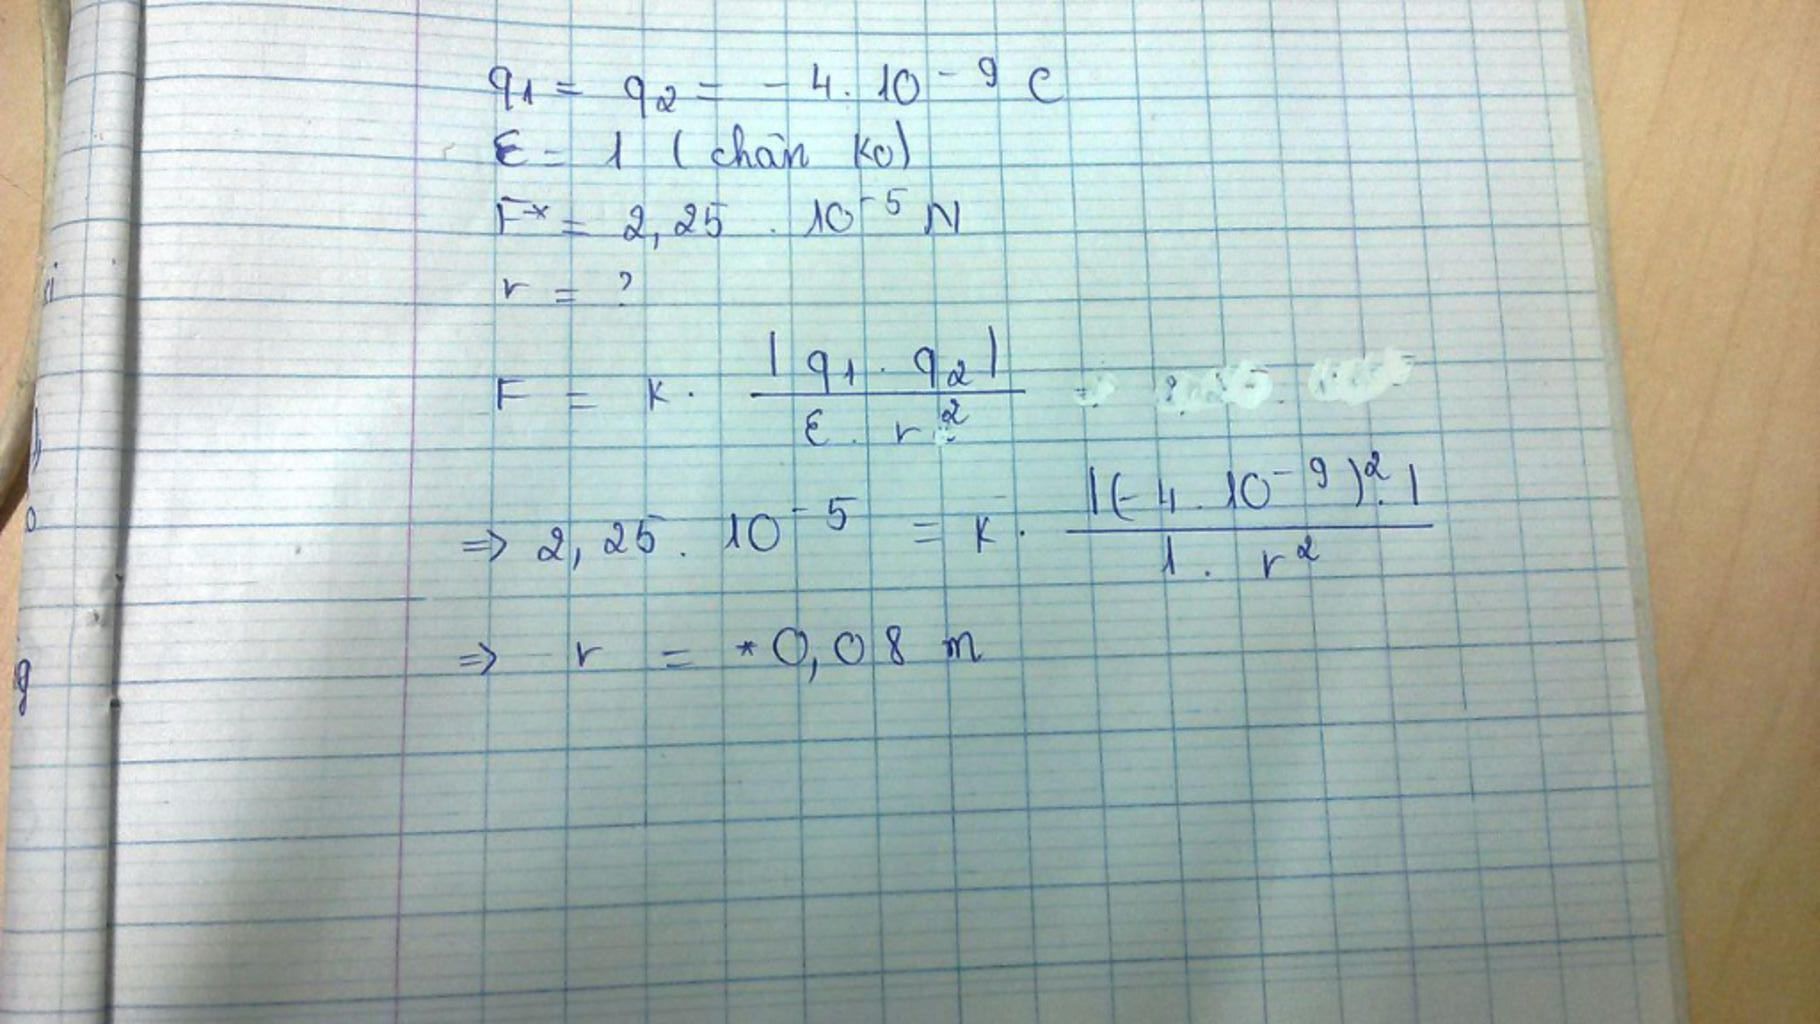 q1 = q2 = - 4. 10^-9 C
ε = 1 (chân ko)
F* = 2,25 . 10^-5 N
r = ?
F = k. |q1 . q2| / ε . r^2
=> 2,25. 10^-5 = k. |(-4. 10^-9)^2.| / 1. r^2
=> r = *0,08 m